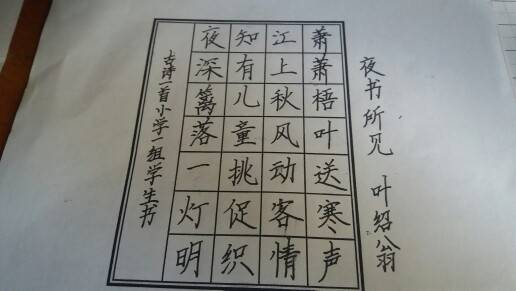 夜书所见 叶绍翁
萧萧梧叶送寒声
江上秋风动客情
知有儿童挑促织
夜深篱落一灯明
古诗一首小学一组学生书